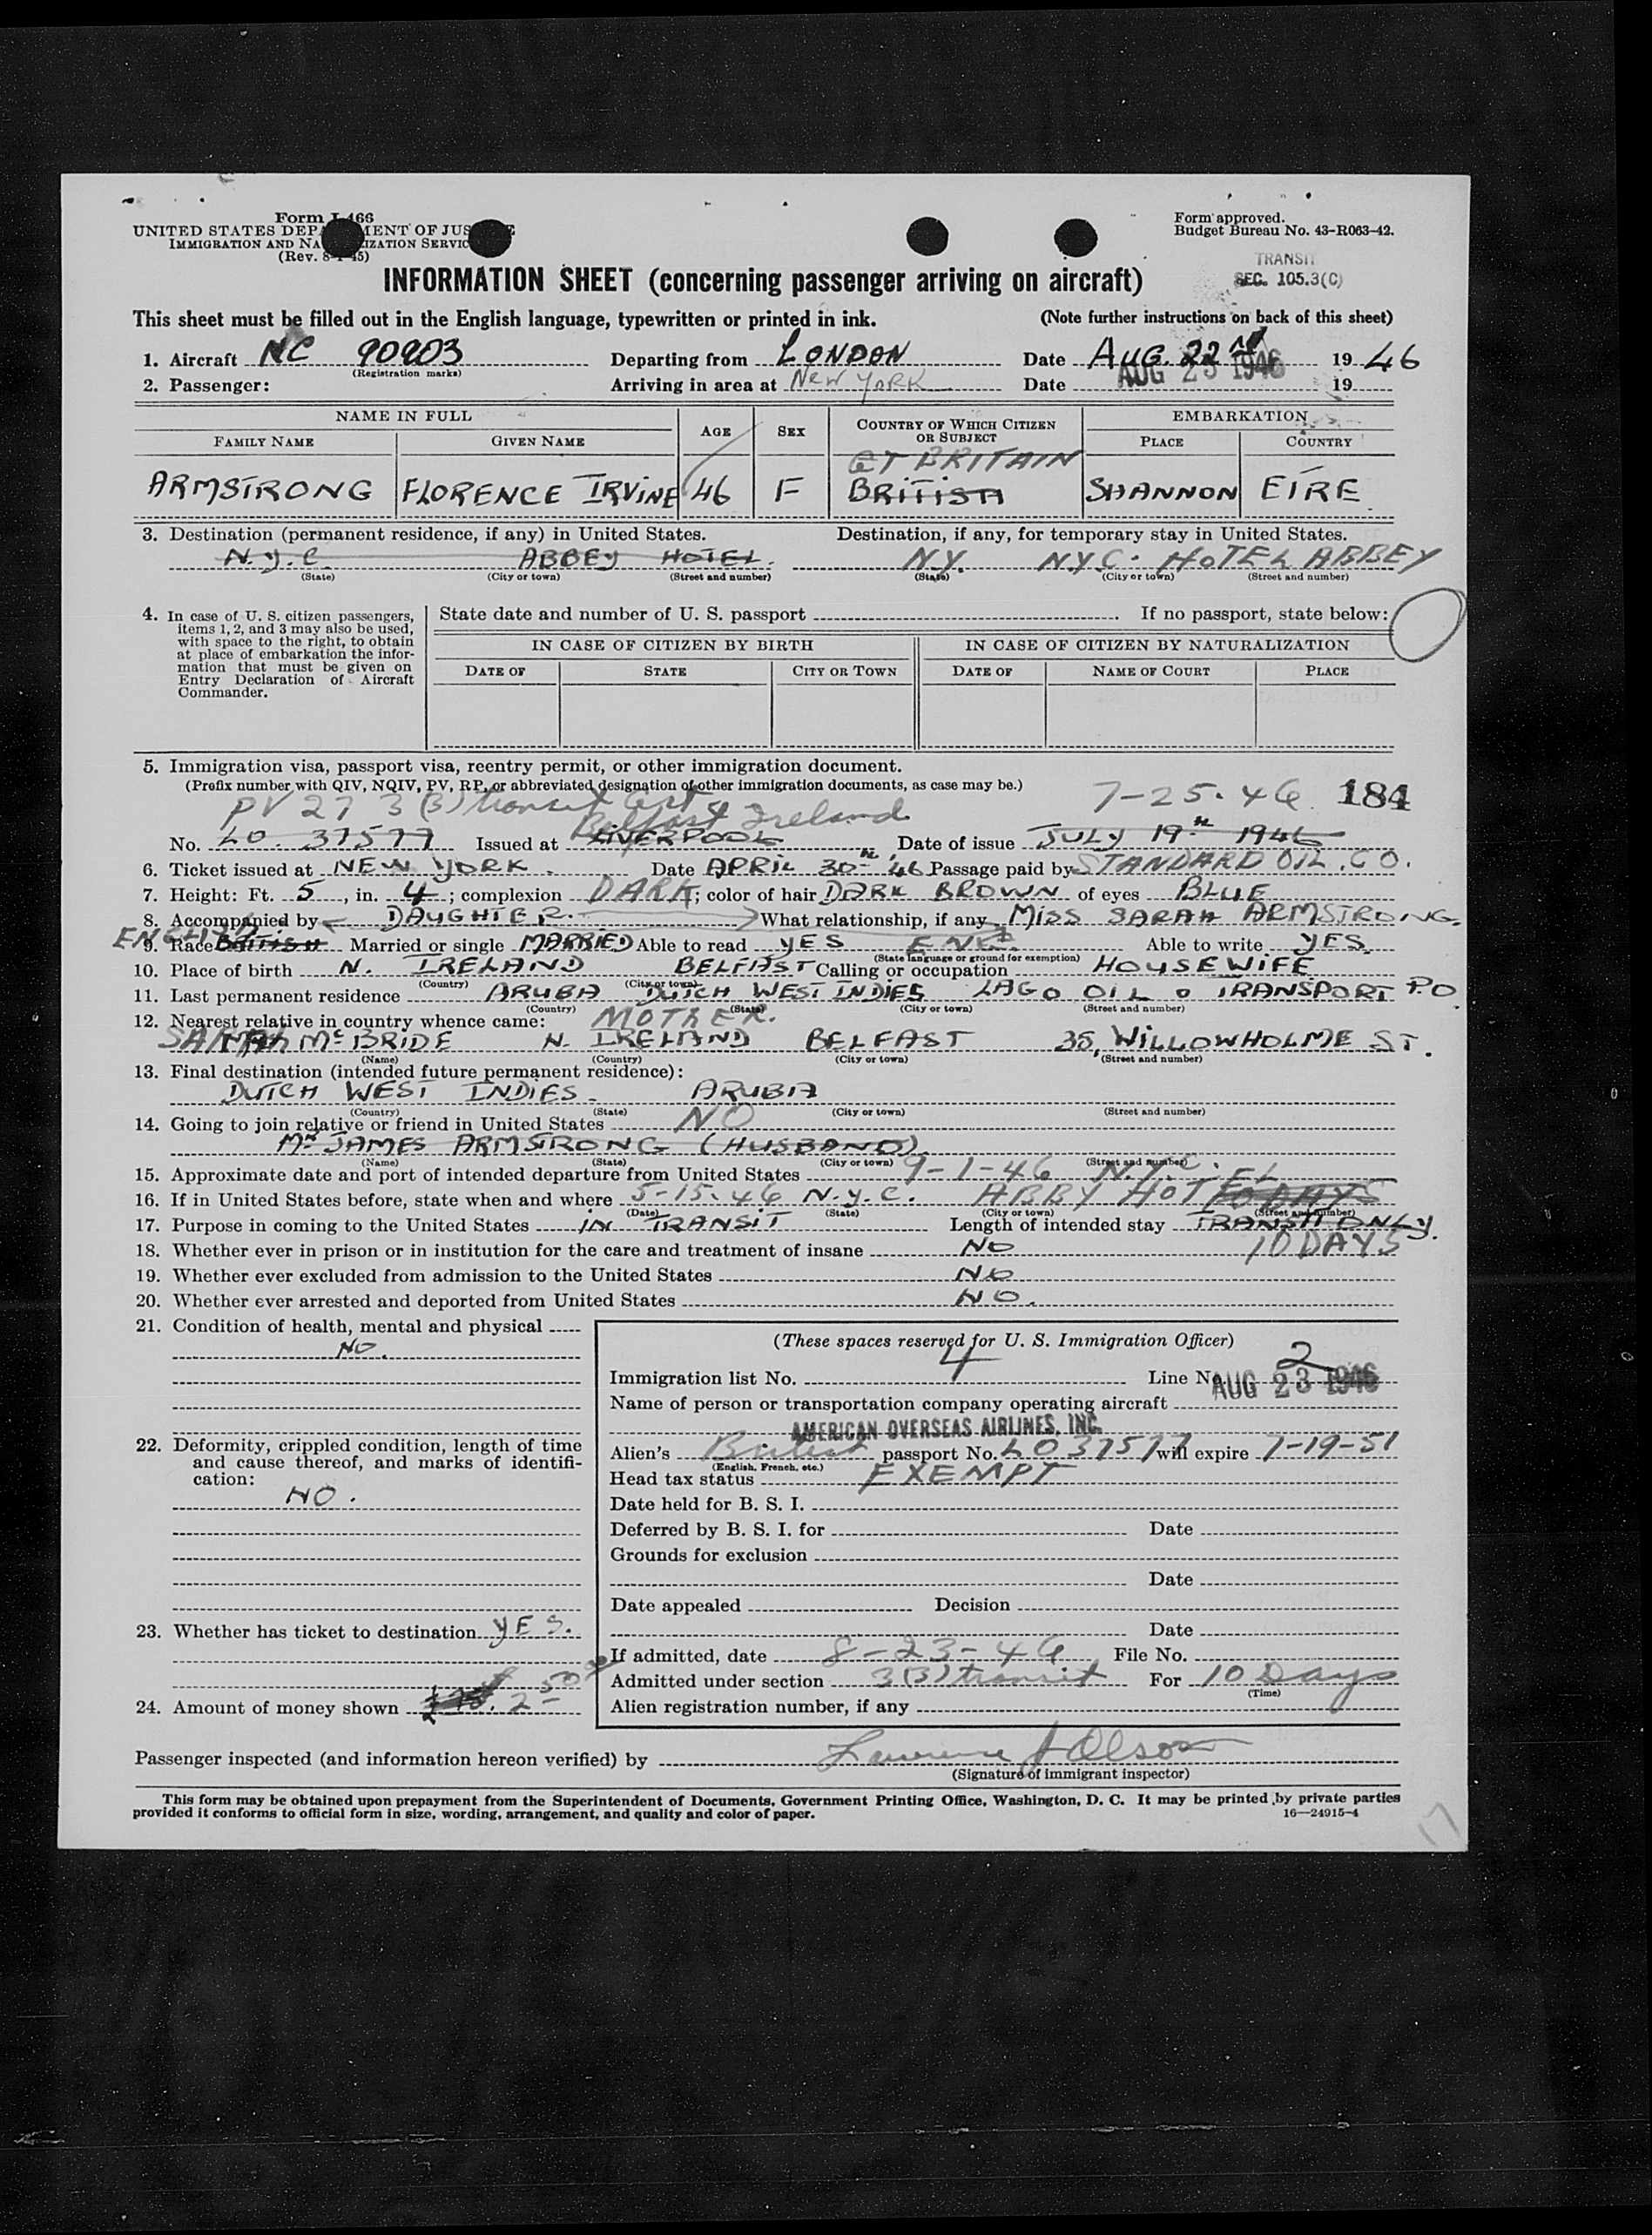 Form I-466
UNITED STATES DEPARTMENT OF JUSTICE
IMMIGRATION AND NATURALIZATION SERVICE
(Rev. 8-1-45)
Form approved.
Budget Bureau No. 43-R063-42.
TRANSIT
SEC. 105.3(C)
INFORMATION SHEET (concerning passenger arriving on aircraft)
This sheet must be filled out in the English language, typewritten or printed in ink. (Note further instructions on back of this sheet)
1. Aircraft NC 90903 Departing from LONDON Date AUG. 22nd 1946
(Registration marks)
2. Passenger: Arriving in area at NEW YORK Date AUG 23 1946 19
NAME IN FULL AGE SEX COUNTRY OF WHICH CITIZEN OR SUBJECT EMBARKATION
FAMILY NAME GIVEN NAME PLACE COUNTRY
GT BRITAIN
ARMSTRONG FLORENCE IRVINE 46 F BRITISH SHANNON EIRE
3. Destination (permanent residence, if any) in United States. Destination, if any, for temporary stay in United States.
N.Y.C. ABBEY HOTEL. N.Y. N.Y.C. HOTEL ABBEY
(State) (City or town) (Street and number) (State) (City or town) (Street and number)
4. In case of U. S. citizen passengers, items 1, 2, and 3 may also be used, with space to the right, to obtain at place of embarkation the information that must be given on Entry Declaration of Aircraft Commander.
State date and number of U. S. passport If no passport, state below:
IN CASE OF CITIZEN BY BIRTH IN CASE OF CITIZEN BY NATURALIZATION
DATE OF STATE CITY OR TOWN DATE OF NAME OF COURT PLACE
5. Immigration visa, passport visa, reentry permit, or other immigration document.
(Prefix number with QIV, NQIV, PV, RP, or abbreviated designation of other immigration documents, as case may be.)
7-25-46 184
PV 27 3(3) transit Cert
Belfast Ireland
No. LO. 37577 Issued at LIVERPOOL Date of issue JULY 19th 1946
6. Ticket issued at NEW YORK. Date APRIL 30th 46 Passage paid by STANDARD OIL. CO.
7. Height: Ft. 5, in. 4; complexion DARK; color of hair DARK BROWN of eyes BLUE
8. Accompanied by DAUGHTER. What relationship, if any MISS SARAH ARMSTRONG.
ENGLISH
9. Race BRITISH Married or single MARRIED Able to read YES ENG. Able to write YES.
(State language or ground for exemption)
10. Place of birth N. IRELAND BELFAST Calling or occupation HOUSEWIFE
(Country) (City or town)
11. Last permanent residence ARUBA DUTCH WEST INDIES LAGO OIL & TRANSPORT P.O.
(Country) (State) (City or town) (Street and number)
12. Nearest relative in country whence came: MOTHER.
SARAH McBRIDE N. IRELAND BELFAST 35, WILLOWHOLME ST.
(Name) (Country) (City or town) (Street and number)
13. Final destination (intended future permanent residence):
DUTCH WEST INDIES. ARUBA
(Country) (State) (City or town) (Street and number)
14. Going to join relative or friend in United States NO
Mr JAMES ARMSTRONG (HUSBAND)
(Name) (State) (City or town) (Street and number)
15. Approximate date and port of intended departure from United States 9-1-46 N.Y.C.
16. If in United States before, state when and where 5-15-46 N.Y.C. ABBY HOTEL 10 DAYS
(Date) (State) (City or town) (Street and number)
17. Purpose in coming to the United States IN TRANSIT Length of intended stay TRANSIT ONLY.
10 DAYS
18. Whether ever in prison or in institution for the care and treatment of insane NO
19. Whether ever excluded from admission to the United States NO
20. Whether ever arrested and deported from United States NO.
21. Condition of health, mental and physical
NO.
22. Deformity, crippled condition, length of time and cause thereof, and marks of identification:
NO.
23. Whether has ticket to destination YES.
24. Amount of money shown 250
(These spaces reserved for U. S. Immigration Officer)
Immigration list No. 4 Line No. 2
AUG 23 1946
Name of person or transportation company operating aircraft
AMERICAN OVERSEAS AIRLINES, INC.
Alien's British passport No. LO 37577 will expire 7-19-51
(English, French, etc.)
Head tax status EXEMPT
Date held for B. S. I.
Deferred by B. S. I. for Date
Grounds for exclusion
Date
Date appealed Decision
Date
If admitted, date 8-23-46 File No.
Admitted under section 3(3) transit For 10 Days
(Time)
Alien registration number, if any
Passenger inspected (and information hereon verified) by Lawrence J Olson
(Signature of immigrant inspector)
This form may be obtained upon prepayment from the Superintendent of Documents, Government Printing Office, Washington, D. C. It may be printed by private parties
provided it conforms to official form in size, wording, arrangement, and quality and color of paper. 16—24915-4
17